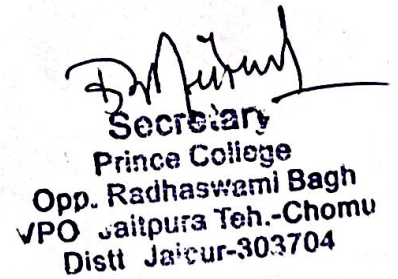 Secretary
Prince College
Opp. Radhaswami Bagh
VPO Jaitpura Teh.-Chomu
Distt Jaipur-303704